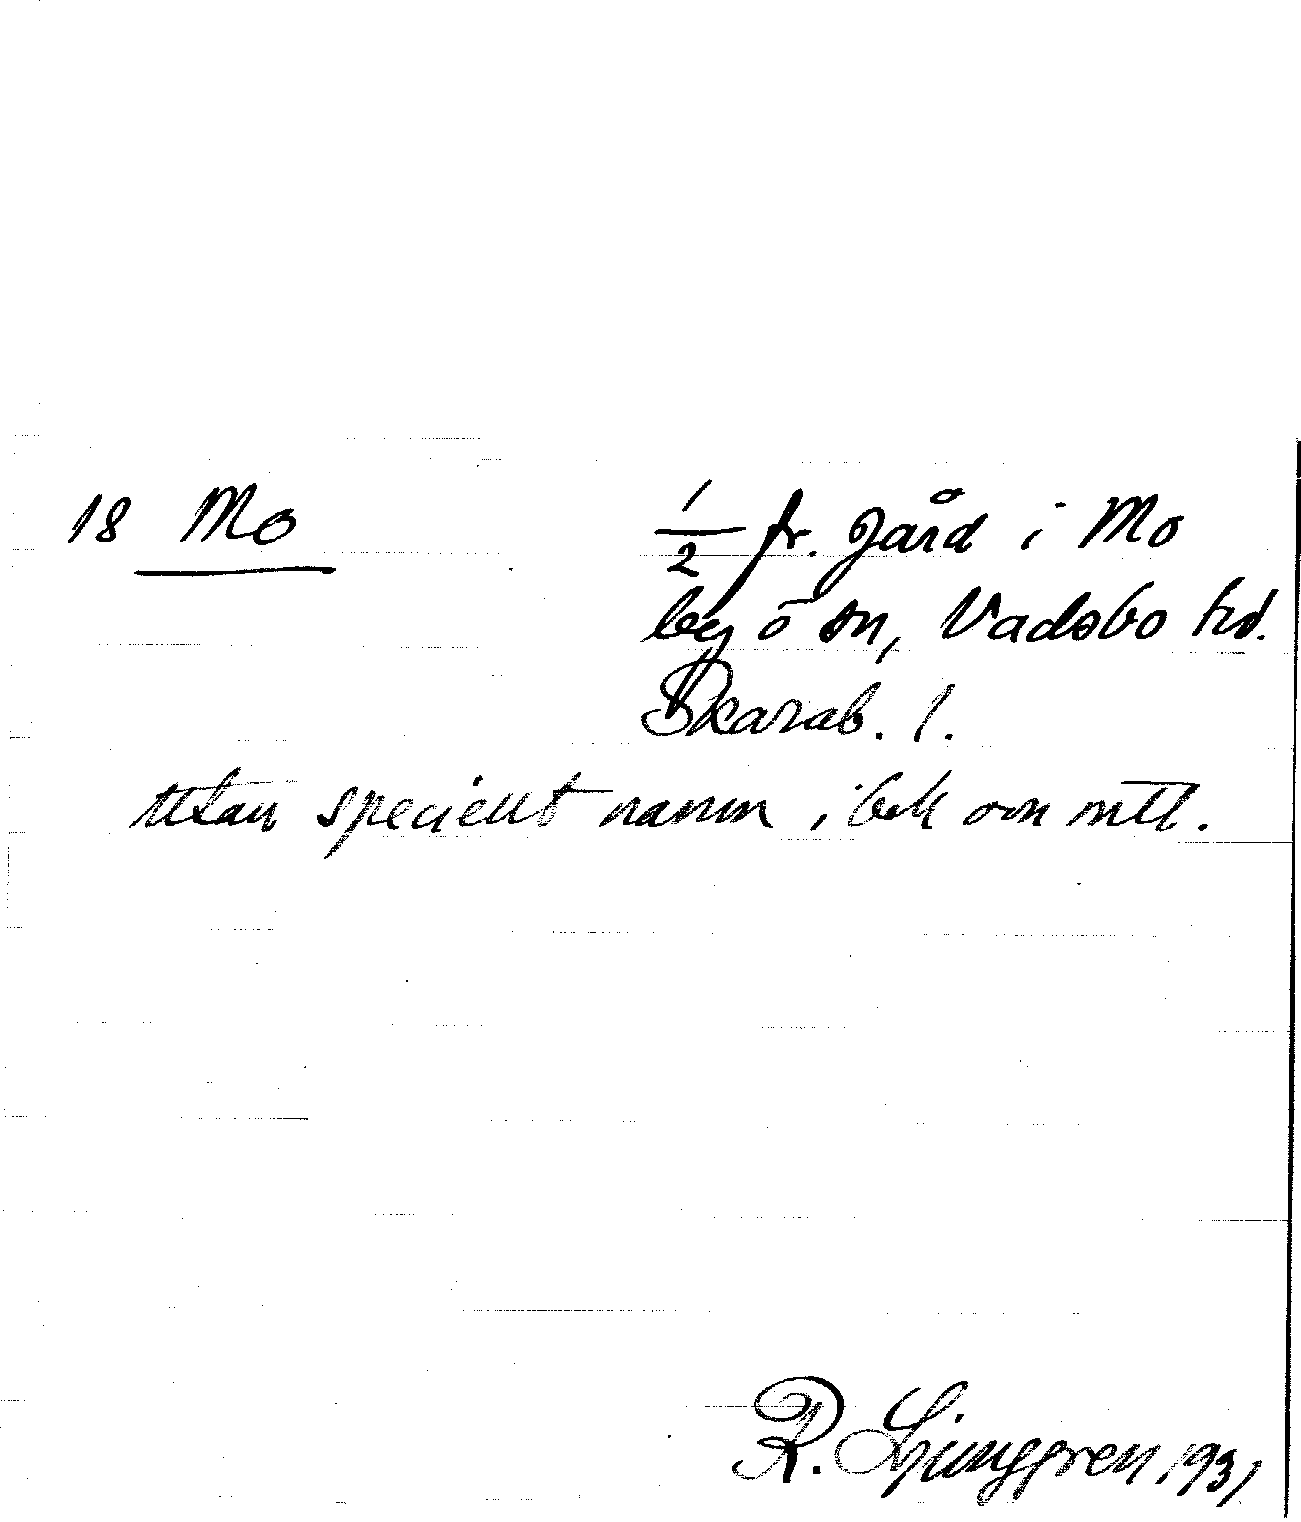 18 Mo
1/2 fr. gård i Mo
by ō sn, Vadsbo hd.
Skarab. l.
utan speciellt namn i bok om mtl.
R. Ljunggren 1931